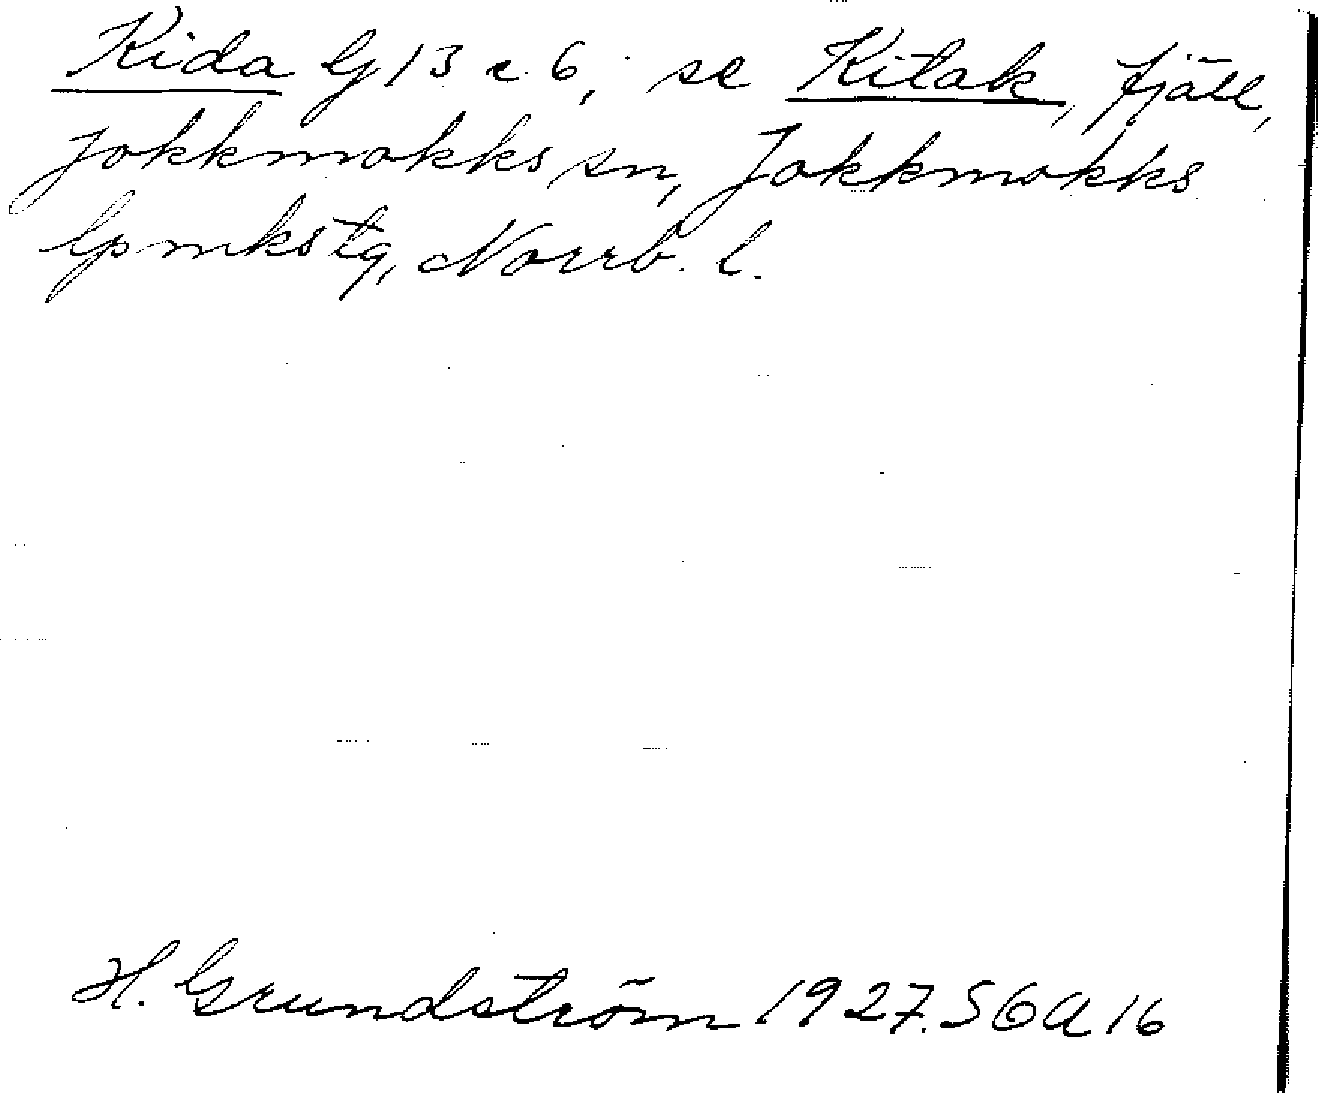 Kida G 13 c 6, se Kitak, fjäll,
Jokkmokks sn, Jokkmokks
lpmkstg, Norrb. l.
H. Grundström 1927. SGA 16